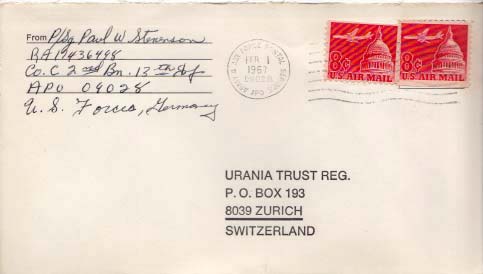 From P/Sg Paul W Stevenson
RA19436498
Co. C 2nd Bn. 13th Inf
APO 09028
U. S. Forces, Germany
ARMY & AIR FORCE POSTAL SERVICE
FEB 1
1967
09028
APO
8¢
U.S. AIR MAIL
8¢
U.S. AIR MAIL
URANIA TRUST REG.
P. O. BOX 193
8039 ZURICH
SWITZERLAND